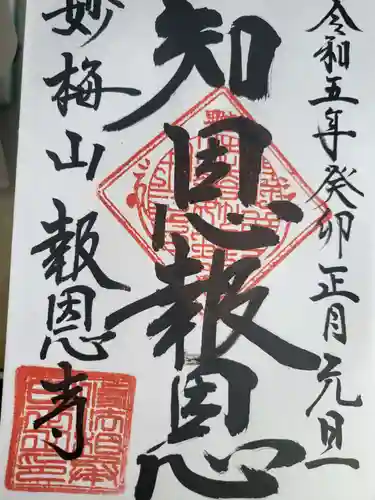 令和五年癸卯正月元旦
知恩報恩
妙梅山報恩寺